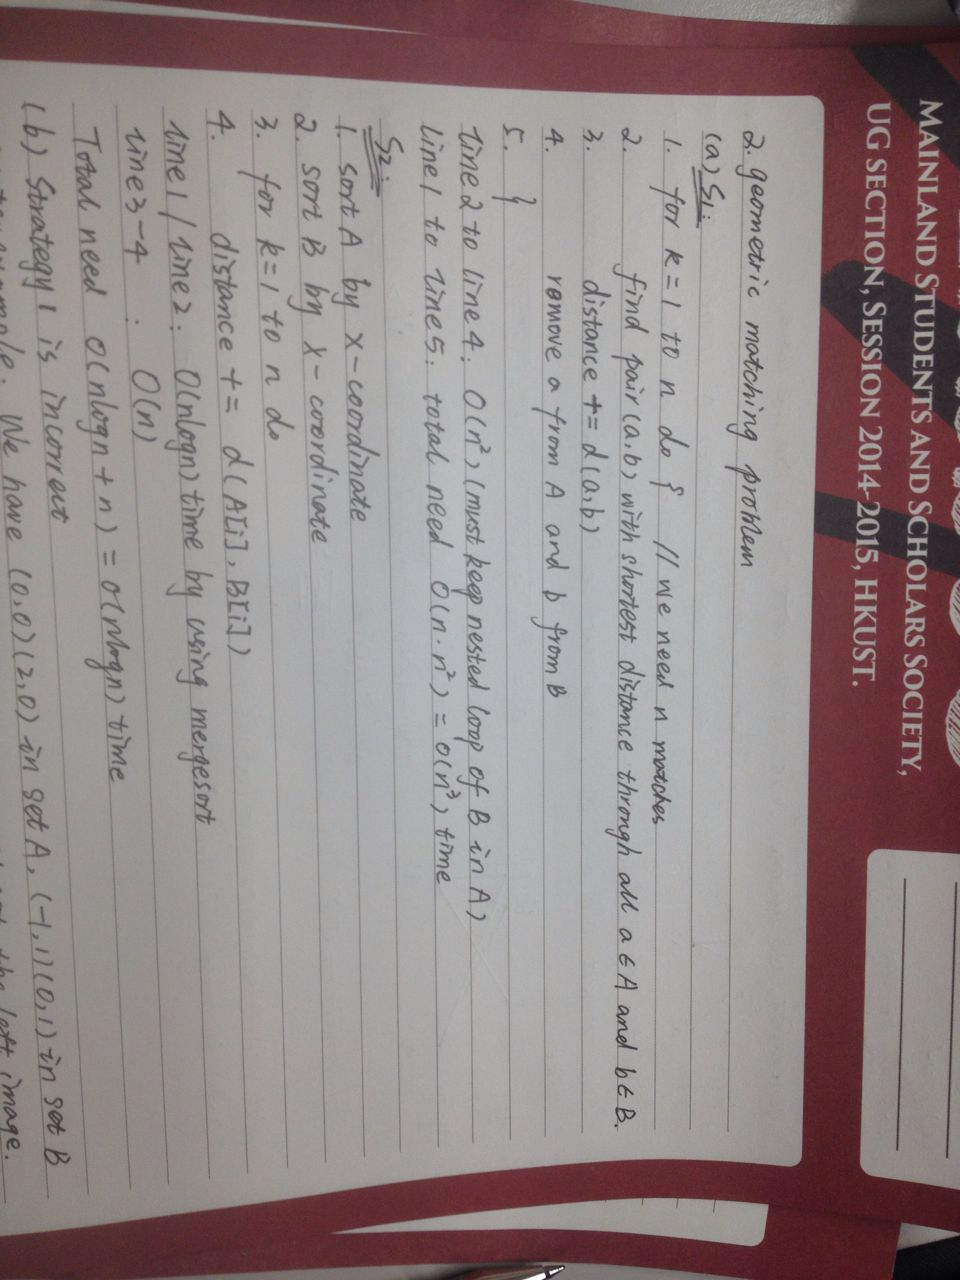 MAINLAND STUDENTS AND SCHOLARS SOCIETY,
UG SECTION, SESSION 2014-2015, HKUST.
2. geometric matching problem
(a) S1:
1. for k=1 to n do { // we need n matches
2. find pair (a,b) with shortest distance through all a∈A and b∈B.
3. distance += d(a,b)
4. remove a from A and b from B
5. }
line 2 to line 4: O(n²) (must keep nested loop of B in A)
line 1 to line 5: total need O(n·n²) = O(n³) time
S2:
1. sort A by x-coordinate
2. sort B by x-coordinate
3. for k=1 to n do
4. distance += d(A[i], B[i])
line 1/line 2: O(nlogn) time by using mergesort
line 3-4: O(n)
Total need O(nlogn+n) = O(nlogn) time
(b) Strategy 1 is incorrect
We have (0,0) (2,0) in set A, (-1,1) (0,1) in set B
the left image.